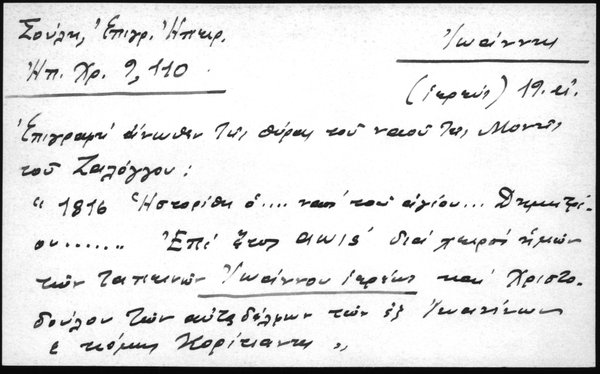 Σούλη, Ἐπιγρ. Ἠπειρ.
Ἠπ. Χρ. 9, 110
Ἰωάννης
(ἱερεύς) 19. αἰ.
Ἐπιγραφή ἄνωθεν τῆς θύρας τοῦ ναοῦ τῆς Μονῆς
τοῦ Ζαλόγγου :
" 1816 Ἡστορίθη ὁ .... ναός τοῦ ἁγίου ... Δημητρί-
ου ....... Ἐπί ἔτος αωις΄ διά χειρός ἡμῶν
τῶν ταπεινῶν Ἰωάννου ἱερέως καί Χριστο-
δούλου τῶν αὐταδέλφων τῶν ἐξ Ἰωαννίνων
κώμης Κορίτιανης "